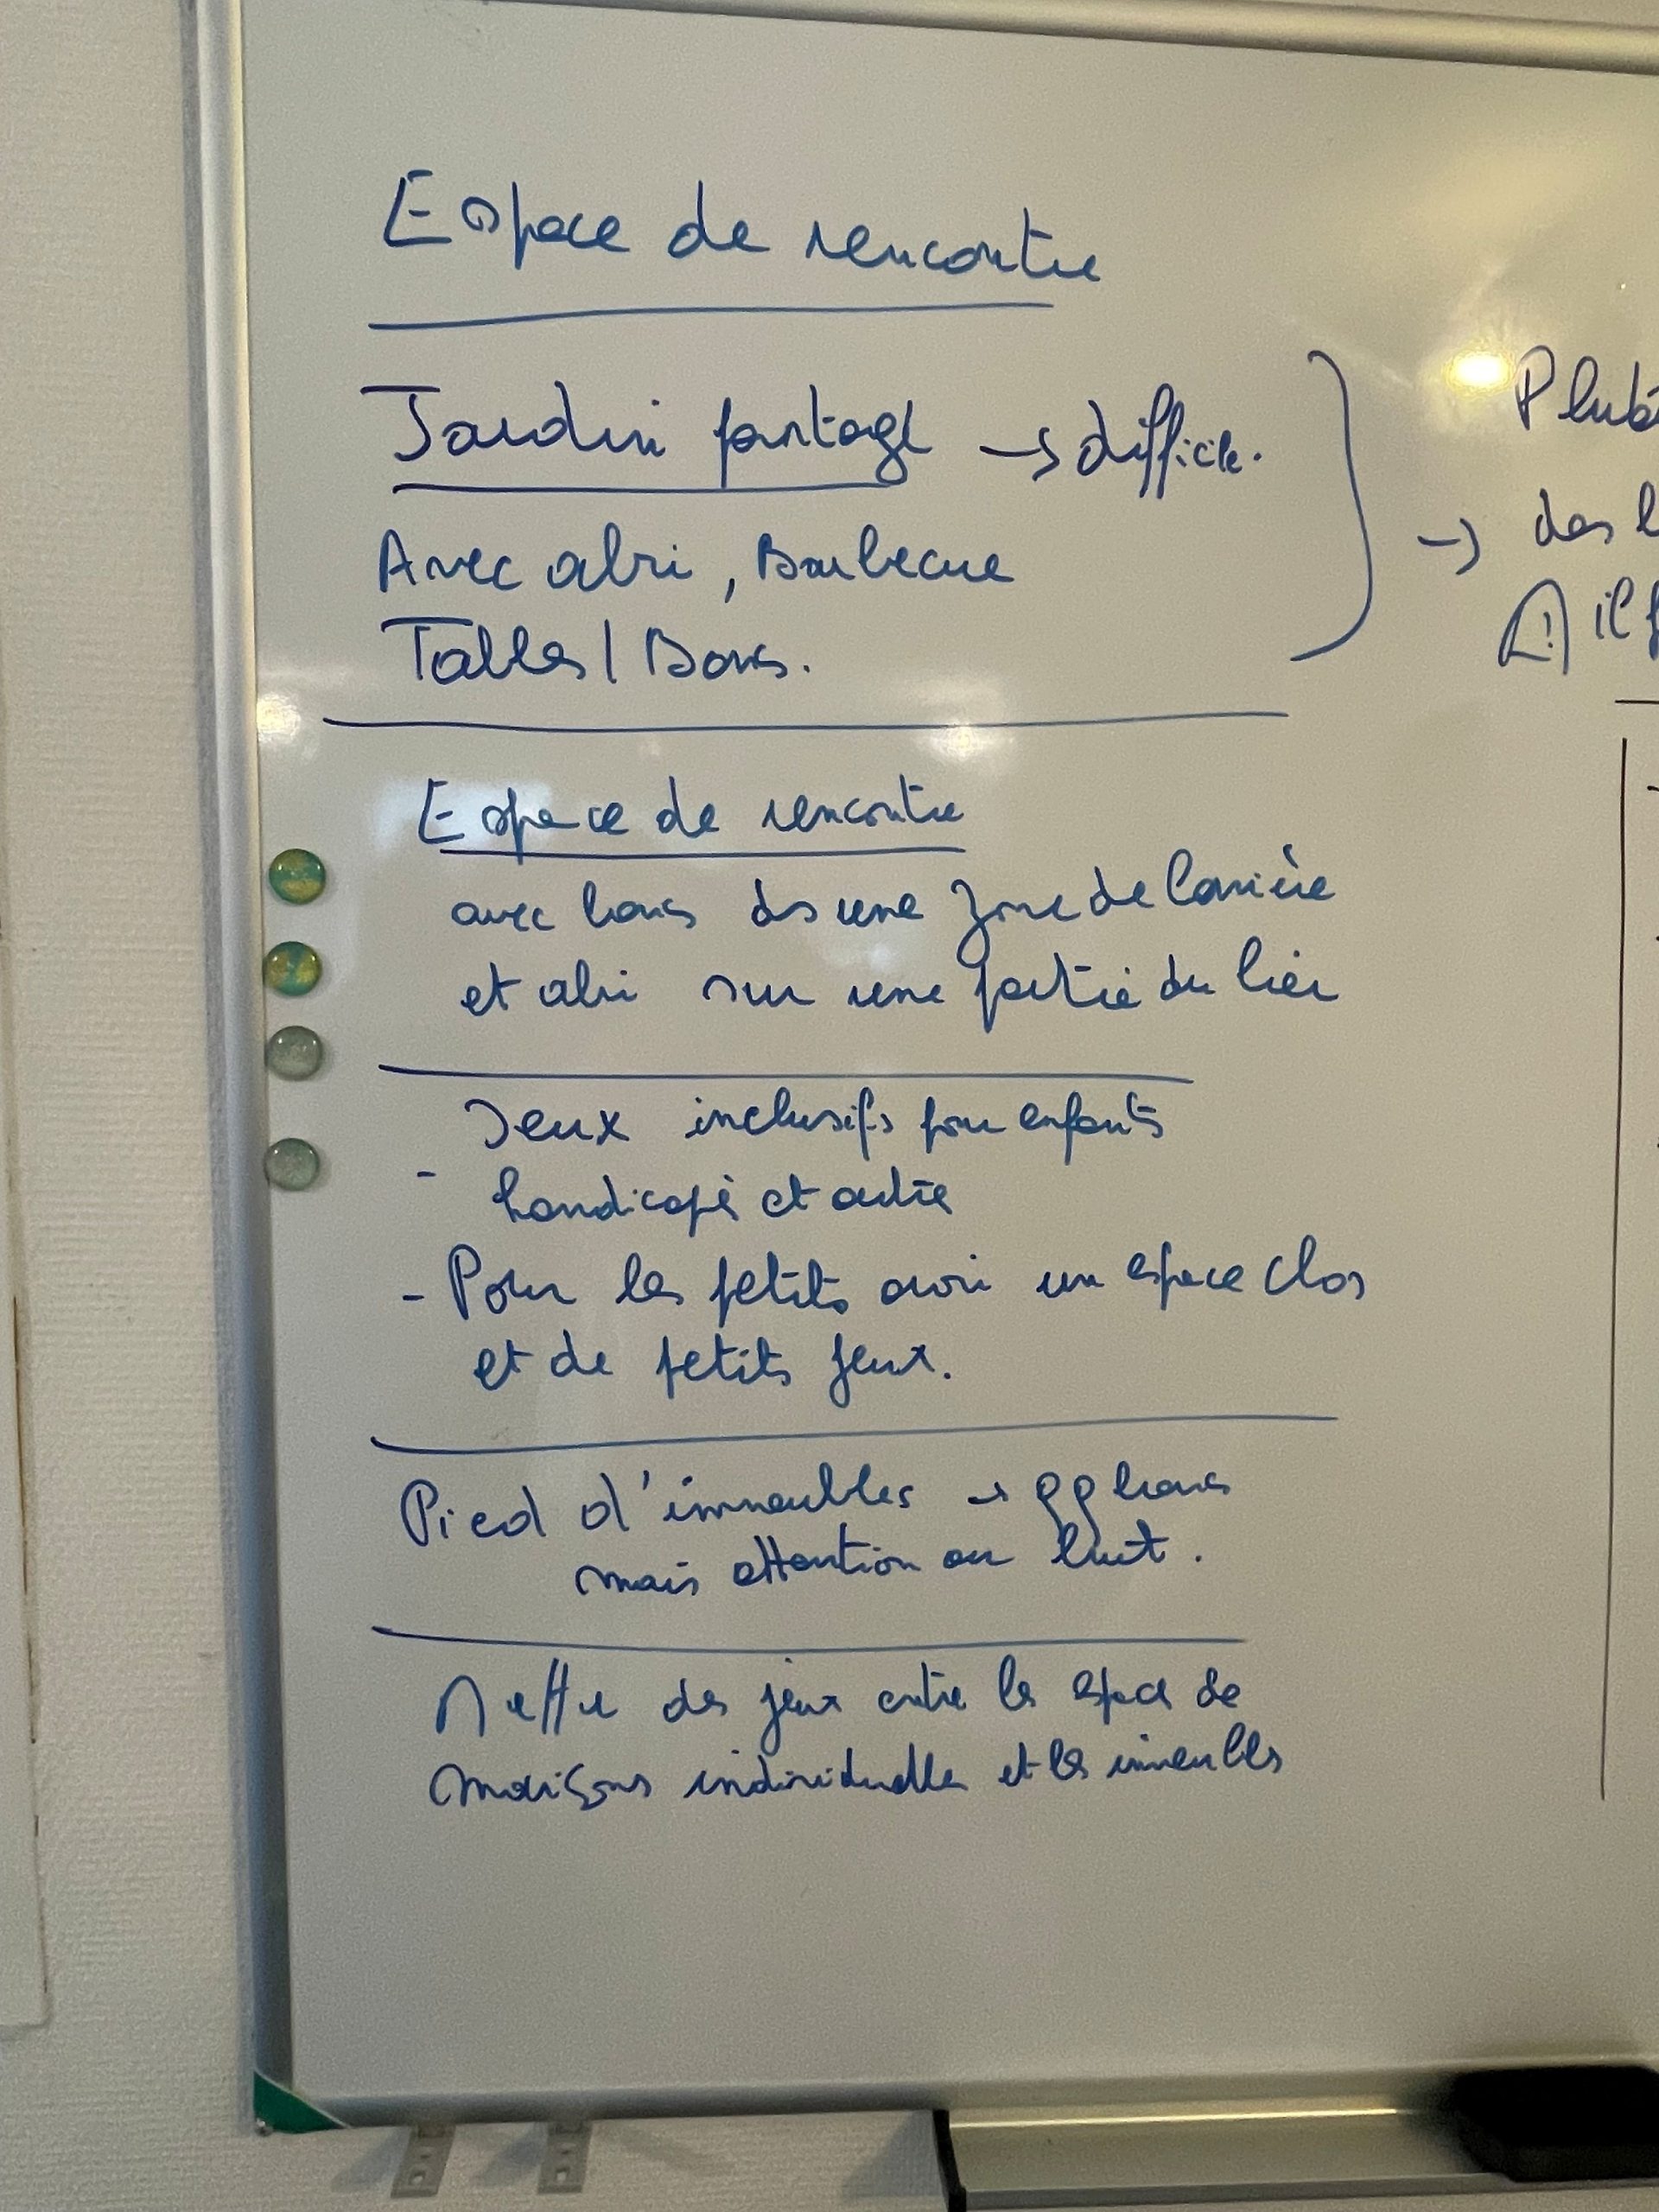 Espace de rencontre
Jardin partagé → difficile.
Avec abri, Barbecue
Tables / Bancs.
→
Espace de rencontre
avec bancs ds une zone de lumière
et abri sur une partie du lieu
Jeux inclusifs pour enfants
- handicapé et autre
- Pour les petits avoir un espace clos
et de petits jeux.
Pied d'immeubles → qq bancs
mais attention au bruit.
Mettre des jeux entre les espaces de
maisons individuelles et les immeubles
des
il